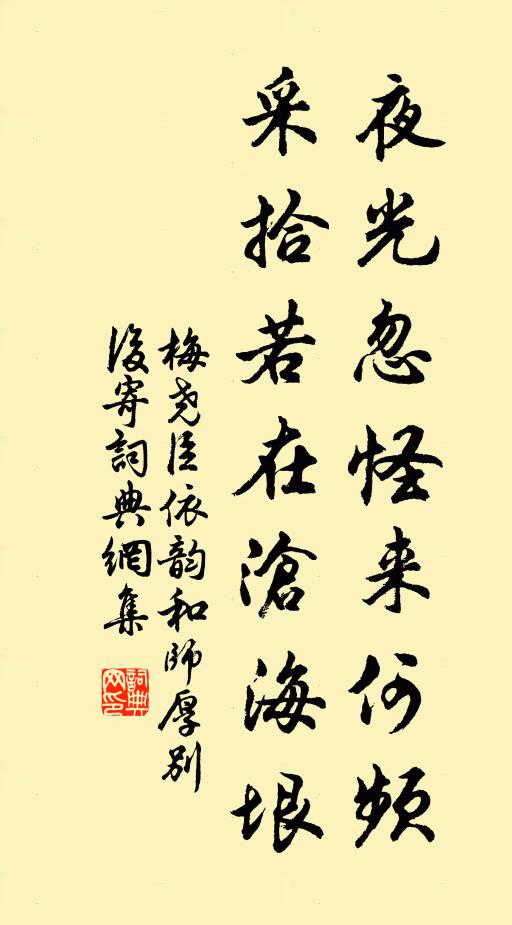 夜光忽怪来何频
采拾若在滄海垠
梅尧臣依韵和师厚别
後寄詞典網集
詞典
网印